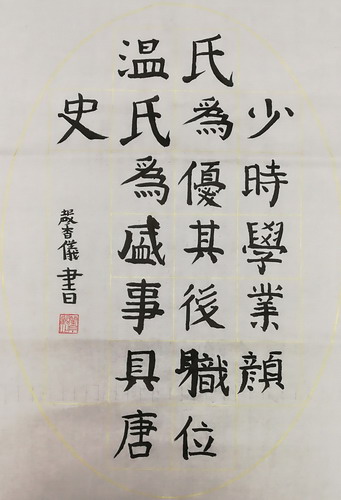 少時學業顔
氏為優其後職位
温氏為盛事具唐
史
嚴杏儀書